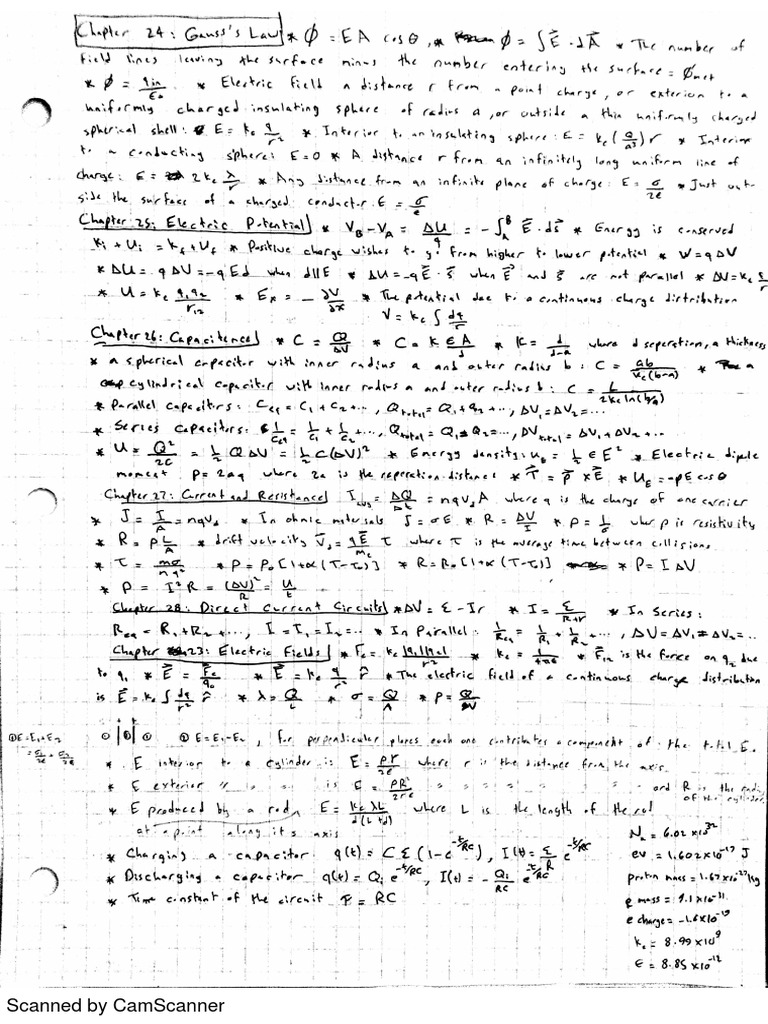 Chapter 24: Gauss's Law * Φ = EA cosθ, * Φ = ∫E⃗·dA⃗ * The number of
field lines leaving the surface minus the number entering the surface = Φnet
* Φ = qin/ε₀ * Electric field a distance r from a point charge, or exterior to a
uniformly charged insulating sphere of radius a, or outside a thin uniformly charged
spherical shell: E = ke q/r² * Interior to an insulating sphere: E = ke(Q/a³)r * Interior
to a conducting sphere: E=0 * A distance r from an infinitely long uniform line of
charge: E = 2ke λ/r * Any distance from an infinite plane of charge: E = σ/2ε * Just out-
side the surface of a charged conductor: E = σ/ε
Chapter 25: Electric Potential * VB-VA = ΔU/q = -∫ᴬᴮ E⃗·ds⃗ * Energy is conserved
Ki + Ui = Kf + Uf * Positive charge wishes to go from higher to lower potential * W=qΔV
* ΔU = qΔV = -qEd when d||E * ΔU = -qE⃗·s⃗ when E⃗ and s⃗ are not parallel * ΔV = ke q/r
* U = ke q₁q₂/r₁₂ * Ex = -∂V/∂x * The potential due to a continuous charge distribution
V = ke ∫ dq/r
Chapter 26: Capacitence * C = Q/ΔV * C = K εA/d * K = d/d-a where d seperation, a thickness
* a spherical capacitor with inner radius a and outer radius b: C = ab/ke(b-a) *
a cylindrical capacitor with inner radius a and outer radius b: C = L/2ke ln(b/a)
* Parallel capacitors: Ceq = C₁+C₂+..., Qtotal = Q₁+Q₂+..., ΔV₁=ΔV₂=...
* Series Capacitors: 1/Ceq = 1/C₁ + 1/C₂+..., Qtotal = Q₁=Q₂=..., ΔVtotal = ΔV₁+ΔV₂+...
* U = Q²/2C = ½QΔV = ½C(ΔV)² * Energy density: uB = ½εE² * Electric diple
moment p=2aq where 2a is the seperation distance * T⃗ = p⃗×E⃗ * UE = -pE cosθ
Chapter 27: Current and Resistance Iavg = ΔQ/Δt = nqvdA where q is the charge of one carrier
* J = I/A = nqvd * In ohmic materials J=σE * R = ΔV/I * ρ = 1/σ where ρ is resistivity
* R = ρ L/A * drift velocity v⃗d = qE⃗/me τ where τ is the average time between collisions
* τ = mσ/nq² * ρ = ρ₀[1+α(T-T₀)] * R=R₀[1+α(T-T₀)] * P=IΔV
* P = I²R = (ΔV)²/R = U/t
Chapter 28: Direct Current Circuits * ΔV = Σ-Ir * I = Σ/R+r * In Series:
Req = R₁+R₂+..., I=I₁=I₂=... * In Parallel: 1/Req = 1/R₁ + 1/R₂+..., ΔV=ΔV₁=ΔV₂=...
Chapter 23: Electric Fields * Fe = ke|q₁||q₂|/r² * ke = 1/4πε * F⃗₁₂ is the force on q₂ due
to q₁ * E⃗ = F⃗e/q₀ * E⃗ = ke q/r² r̂ * The electric field of a continuous charge distribution
is E⃗ = ke ∫ dq/r² r̂ * λ = Q/L * σ = Q/A * ρ = Q/V
① E=E₁+E₂ ① |②| ① ② E=E₁-E₂, for perpendicular planes each one contributes a component of the total E.
* E interior to a cylinder is: E = ρr/2ε where r is the distance from the axis.
* E exterior " " " is E = ρR²/2rε " " " " " " and R is the radius
of the cylinder
* E produced by a rod, E = keλL/d(L+d) where L is the length of the rod
at a point along its axis
* Charging a capacitor q(t) = CΣ(1-e^-t/RC), I(t) = Σ/R e^-t/RC
* Discharging a capacitor q(t) = Qi e^-t/RC, I(t) = -Qi/RC e^-t/RC
* Time constant of the circuit τ = RC
ev = 1.602×10⁻¹⁷ J
proton mass = 1.67×10⁻²⁷ kg
e mass = 9.1×10⁻³¹
e charge = -1.6×10⁻¹⁹
ke = 8.99×10⁹
ε = 8.85×10⁻¹²
Scanned by CamScanner